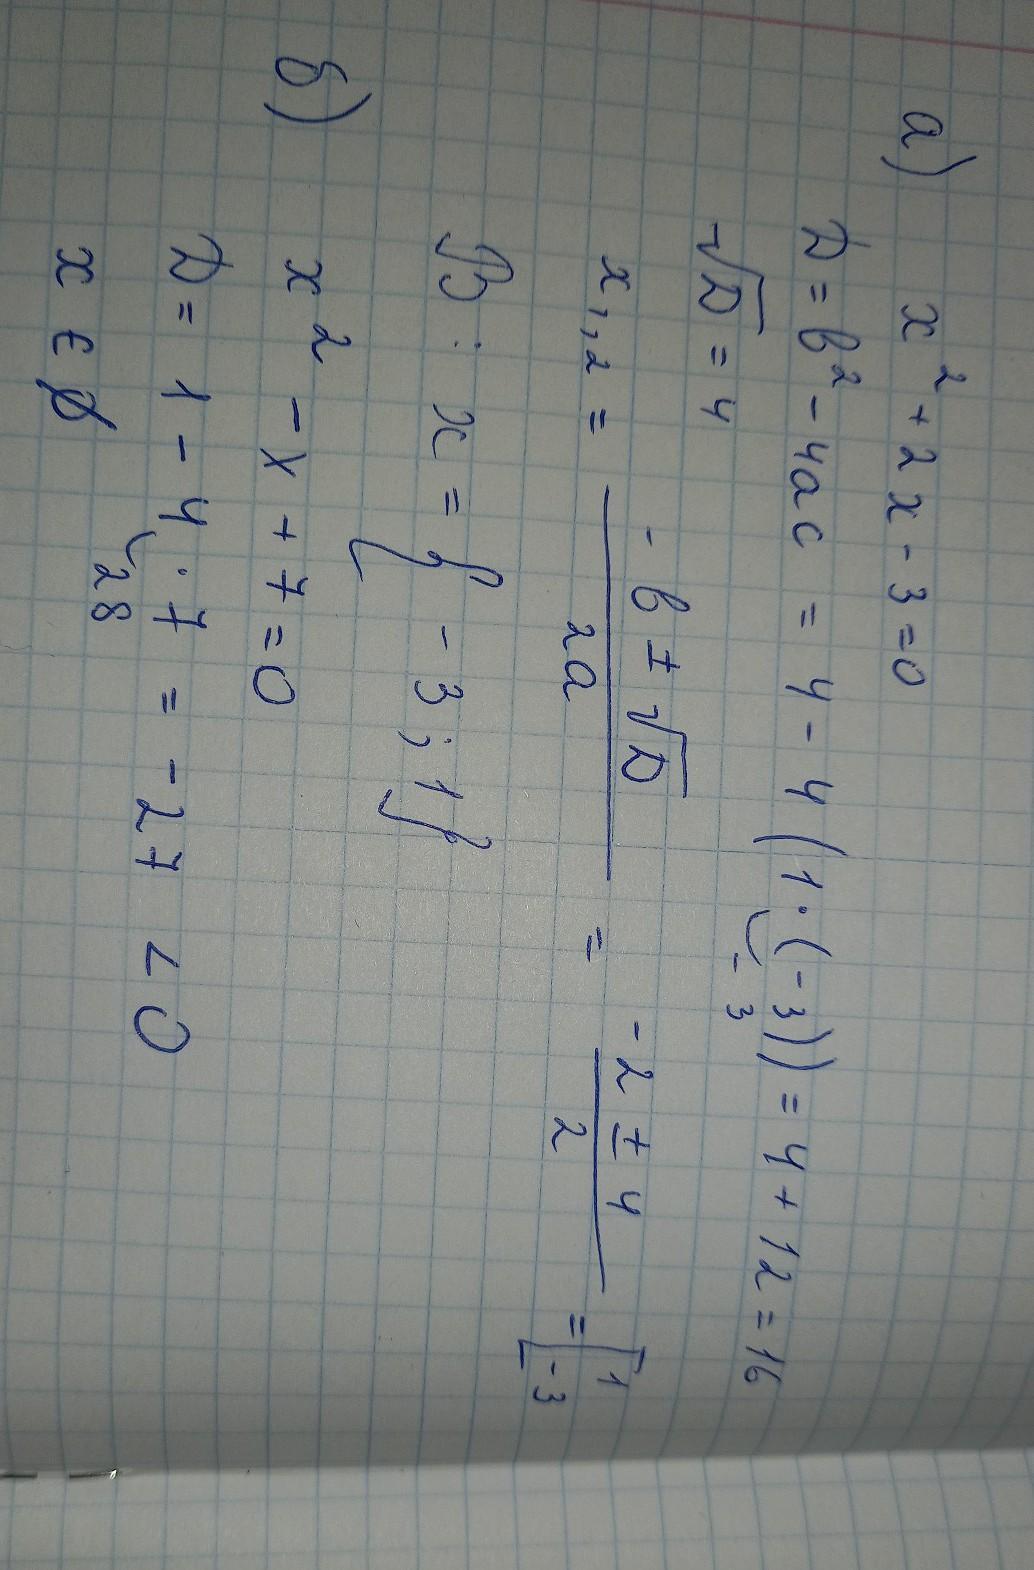 а) x² + 2x - 3 = 0
D = b² - 4ac = 4 - 4(1·(-3)) = 4 + 12 = 16
-3
√D = 4
x₁,₂ = (-b ± √D)/(2a) = (-2 ± 4)/2 = [1
-3
x = {-3; 1}
б) x² - x + 7 = 0
D = 1 - 4·7 = -27 < 0
28
x ∈ ∅